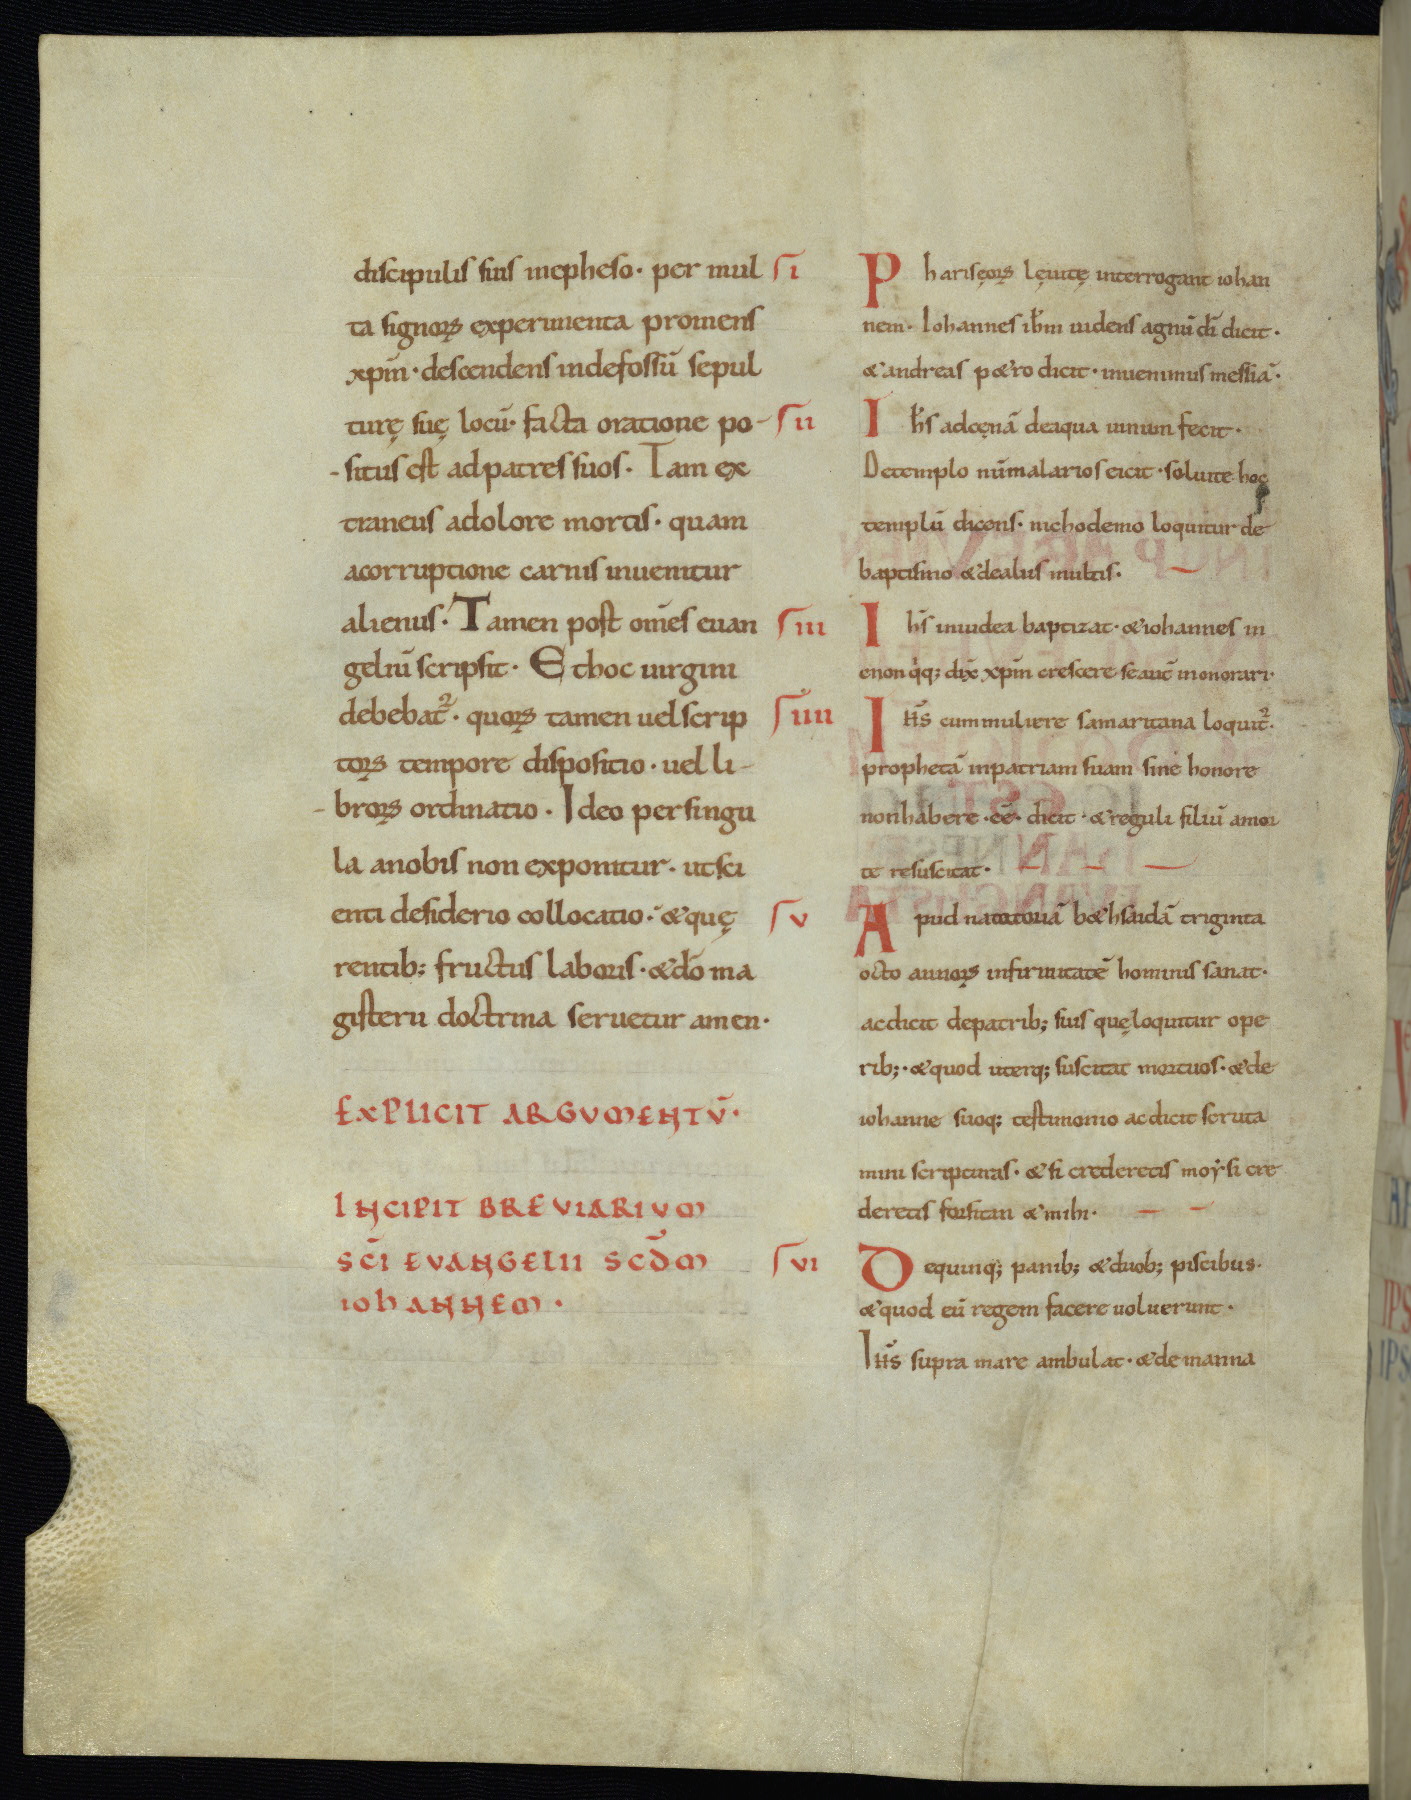 discipulis suis inepheso· per mul
ta signoꝝ experimenta promens
xpm̄· descendens indefossū sepul
turę suę locū· facta oratione po-
-situs est adpatres suos· Tam ex
traneus adolore mortis· quam
acorruptione carnis inuenitur
alienus· Tamen post om̄es euan
geliū scripsit· Et hoc uirgini
debebat᷑· quoꝝ tamen uel scrip
toꝝ tempore dispositio· uel li-
-broꝝ ordinatio· Ideo persingu
la anobis non exponitur· utsci
enti desiderio collocatio· &quę
rentib; fructus laboris· &dō ma
gisterii doctrina seruetur amen·
EXPLICIT ARGVMENTV̄·
INCIPIT BREVIARIVM
SC̄I EVANGELII SCD̄M
IOHANNEM·
ſi
Phariseoꝝ lęuitę interrogant iohan
nem· Iohannes ih̄m uidens agnū dī dicit·
&andreas p&ro dicit· inuenimus messiā·
ſii
Ih̄s adcęnā deaqua uinum fecit·
Detemplo nūmalarios eicit· soluite hoc
templū dicens· nichodemo loquitur de
baptismo &dealiis multis·
ſiii
Ih̄s iniudea baptizat· &iohannes in
enon qͥq; dix̄ xpm̄ crescere seaut̄ minorari·
ſiiii
IH̄S cummuliere samaritana loquit᷑·
prophetā inpatriam suam sine honore
nonhabere· eē· dicit· &reguli filiū amor
te resuscitat·
ſv
Apud natatoriā b&hsaidā triginta
octo annoꝝ infirmitatē hominis sanat·
acdicit depatrib; suis quęloquitur ope
rib;· &quod uterq; suscitat mortuos· &de
iohanne suoq; testimonio acdicit scruta
mini scripturas· &si crederetis moysi cre
deretis forsitan &mihi·
ſvi
Dequinq; panib; &duob; piscibus·
&quod eū regem facere uoluerunt·
IH̄S supra mare ambulat· &demanna